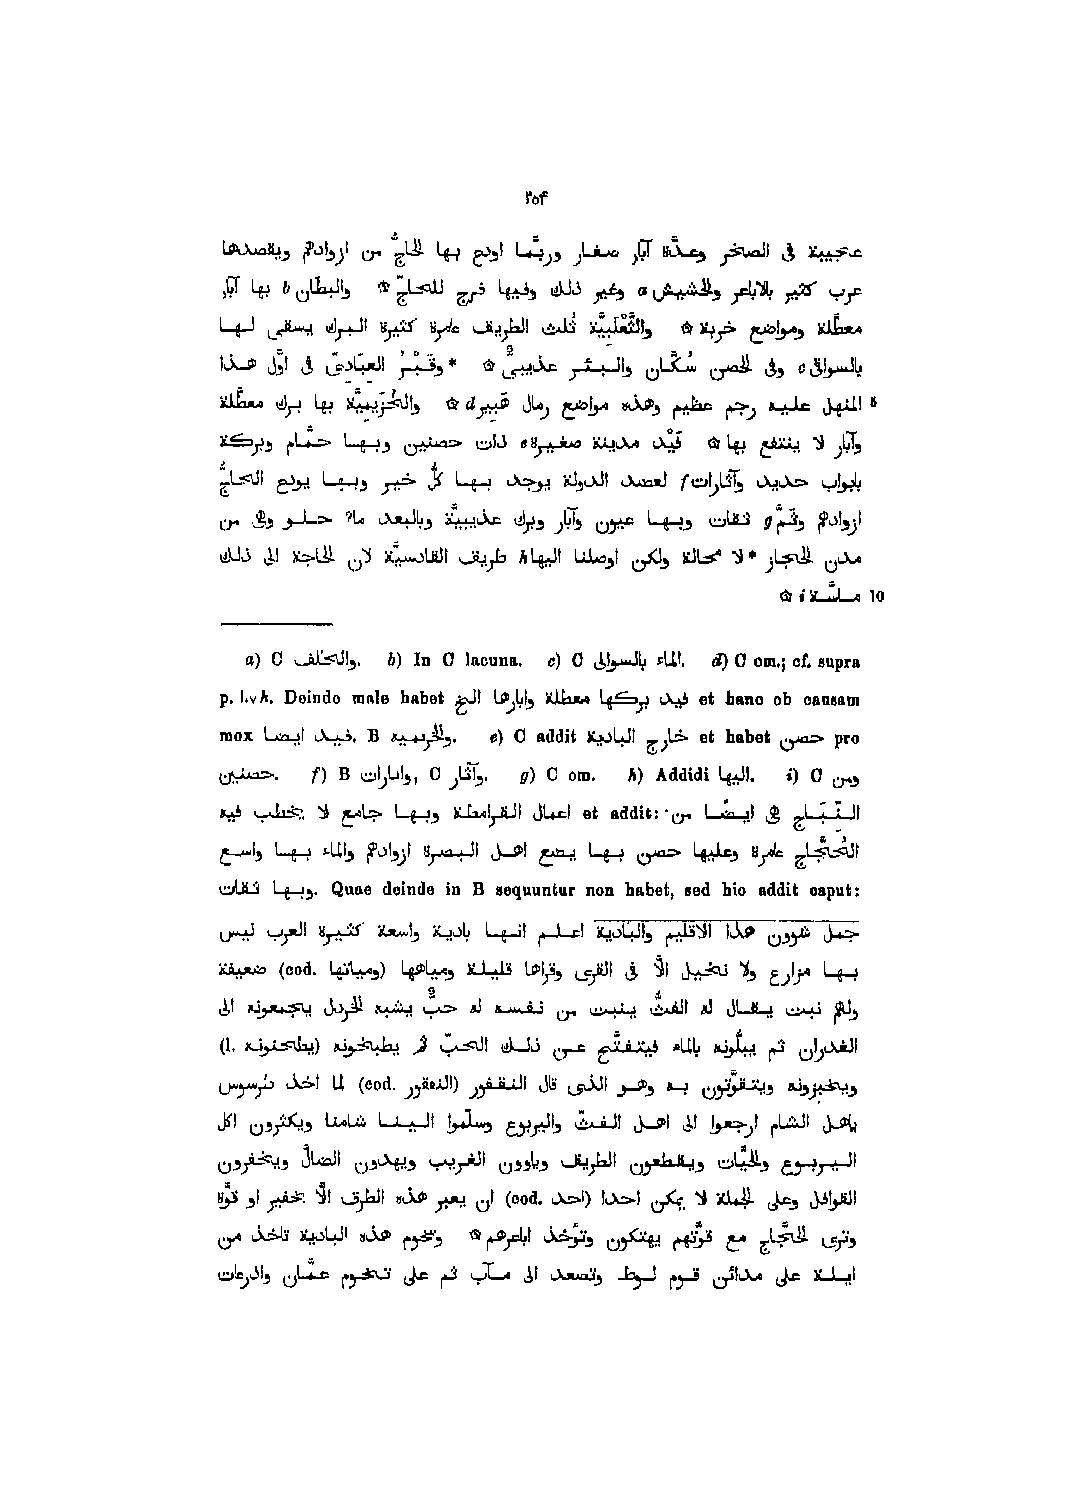 ٢٥٤
عجيبة فى الصخر وعدَّة آبار صغار وربَّما اودع بها الحاجُّ من ازوادهم ويقصدها
عرب كثير بالاباعر والحشيش a وغير ذلك وفيها فرج للحاجّ ۞ والبطان b بها آبار
معطَّلة ومواضع خربة ۞ والثَّعْلبيَّة ثُلث الطريق عامرة كثيرة البرك يسقى لها
بالسواقى c وفى الحصن سُكّان والبئر عذيبىٌّ ۞ *وقَبْرُ العباديّ فى اوَّل هذا
5 المنهل عليه رجم عظيم وهذه مواضع رمال هَبير d ۞ والخُزَيميَّة بها برك معطَّلة
وآبار لا ينتفع بها ۞ فَيْد مدينة صغيرة e ذات حصنين وبها حمَّام وبركة
بابواب حديد وآثارات f لعضد الدولة يوجد بها كلُّ خير وبها يودع الحاجُّ
ازوادهم وثَمَّ g ثقات وبها عيون وآبار وبرك عذيبيَّة وبالبعد ماء حلو وهى من
مدن الحجاز *لا محالة ولكن اوصلنا اليها h طريق القادسيَّة لان الحاجة الى ذلك
10 ماسَّة i ۞
a) C والتخلف. b) In C lacuna. c) C الماء بالسوالى. d) C om.; cf. supra
p. ١٠٧ h. Deinde male habet فيد بركها معطلة وابارها الخ et hanc ob causam
mox فيد ايضا. B والخريميه. e) C addit خارج البادية et habet حصن pro
حصنين. f) B وابارات, C وآثار. g) C om. h) Addidi اليها. i) C ومن
النِّبَاج هى ايضًا من :et addit اعمال القرامطة وبها جامع لا يخطب فيه
الحُجَّاج عامرة وعليها حصن بها يضع اهل البصرة ازوادهم والماء بها واسع
وبها ثقات. Quae deinde in B sequuntur non habet, sed hic addit caput:
جمل شوون هذا الاقليم والبادية اعلم انها بادية واسعة كثيرة العرب ليس
بها مزارع ولا نخيل الّا فى القرى وقراها قليلة ومياهها (ومياتها .cod) ضعيفة
ولهم نبت يقال له الفثُّ ينبت من نفسه له حبٌّ يشبه الخردل يجمعونه الى
الغدران ثم يبلّونه بالماء فيتفتَّح عن ذلك الحبّ ثم يطبخونه (يطحنونه .l)
ويخبزونه ويتقوَّتون به وهو الذى قال النقفور (النعقور .cod) لما اخذ طرسوس
ياهل الشام ارجعوا الى اهل الفثّ واليربوع وسلّموا الينا شامنا ويكثرون اكل
اليربوع والحيَّات ويقطعون الطريق وياوون الغريب ويهدون الضالَّ ويخفرون
القوافل وعلى الجملة لا يمكن احدا (احد .cod) ان يعبر هذه الطرق الّا بخفير او قوَّة
وترى الحجَّاج مع قوَّتهم يهتكون وتؤخذ اباعرهم ۞ وتخوم هذه البادية تاخذ من
ايلة على مدائن قوم لوط وتصعد الى مآب ثم على تخوم عمَّان واذرعات